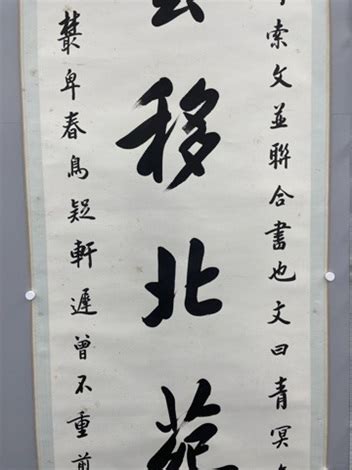 索文並聯合書也文曰青冥
移北
叢卑春鳥疑軒遲曾不重前